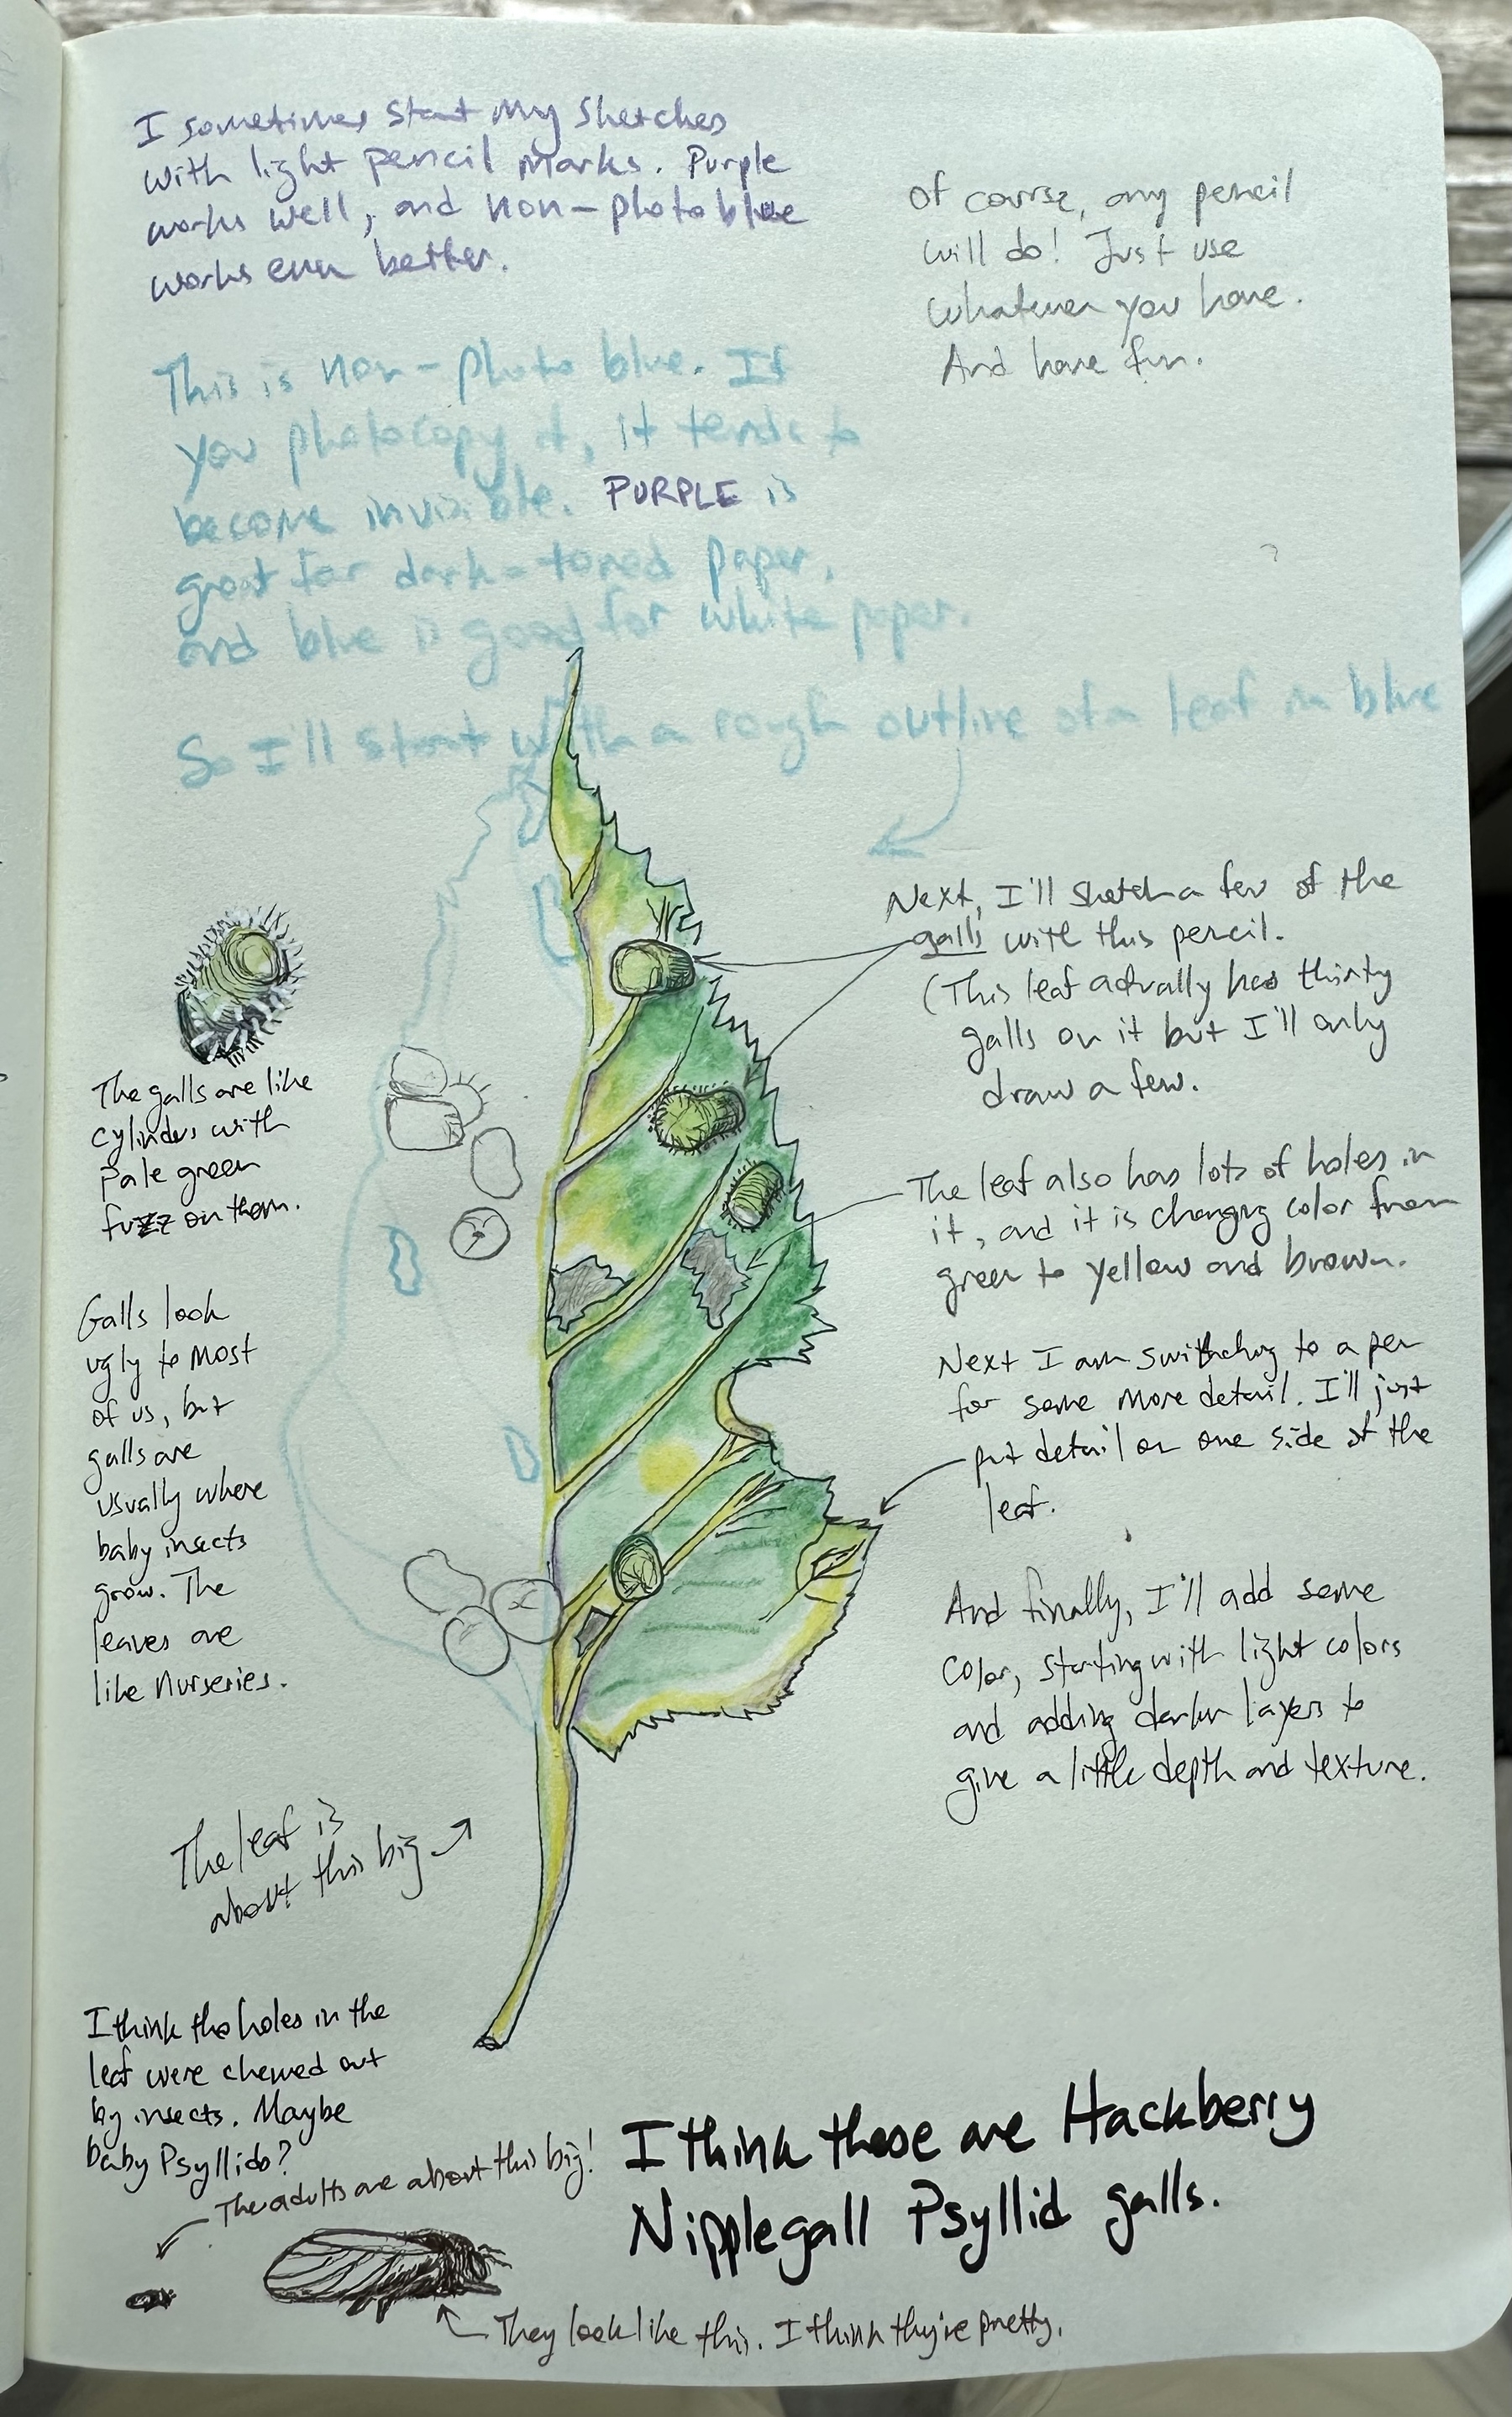 I sometimes start my sketches
with light pencil marks. Purple
works well, and non-photo blue
works even better.
Of course, any pencil
will do! Just use
whatever you have.
And have fun.
This is non-photo blue. If
you photocopy it, it tends to
become invisible. PURPLE is
great for dark-toned paper,
and blue is good for white paper.
So I'll start with a rough outline of a leaf in blue
Next, I'll sketch a few of the
galls with this pencil.
(This leaf actually has thirty
galls on it but I'll only
draw a few.
The galls are like
cylinders with
pale green
fuzz on them.
The leaf also has lots of holes in
it, and it is changing color from
green to yellow and brown.
Galls look
ugly to most
of us, but
galls are
usually where
baby insects
grow. The
leaves are
like nurseries.
Next I am switching to a pen
for some more detail. I'll just
put detail on one side of the
leaf.
And finally, I'll add some
color, starting with light colors
and adding darker layers to
give a little depth and texture.
The leaf is
about this big
I think the holes in the
leaf were chewed out
by insects. Maybe
baby Psyllids?
The adults are about this big!
I think these are Hackberry
Nipplegall Psyllid galls.
They look like this. I think they're pretty.